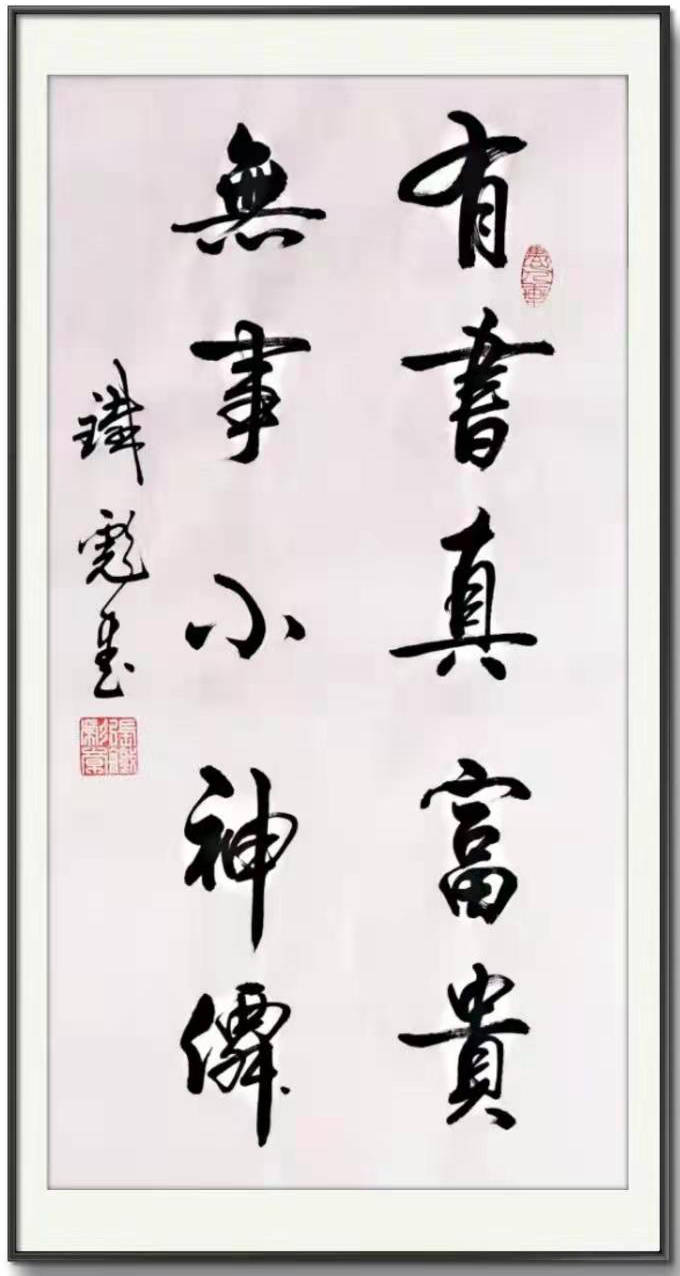 有書真富貴
無事小神僊
鐵彪書